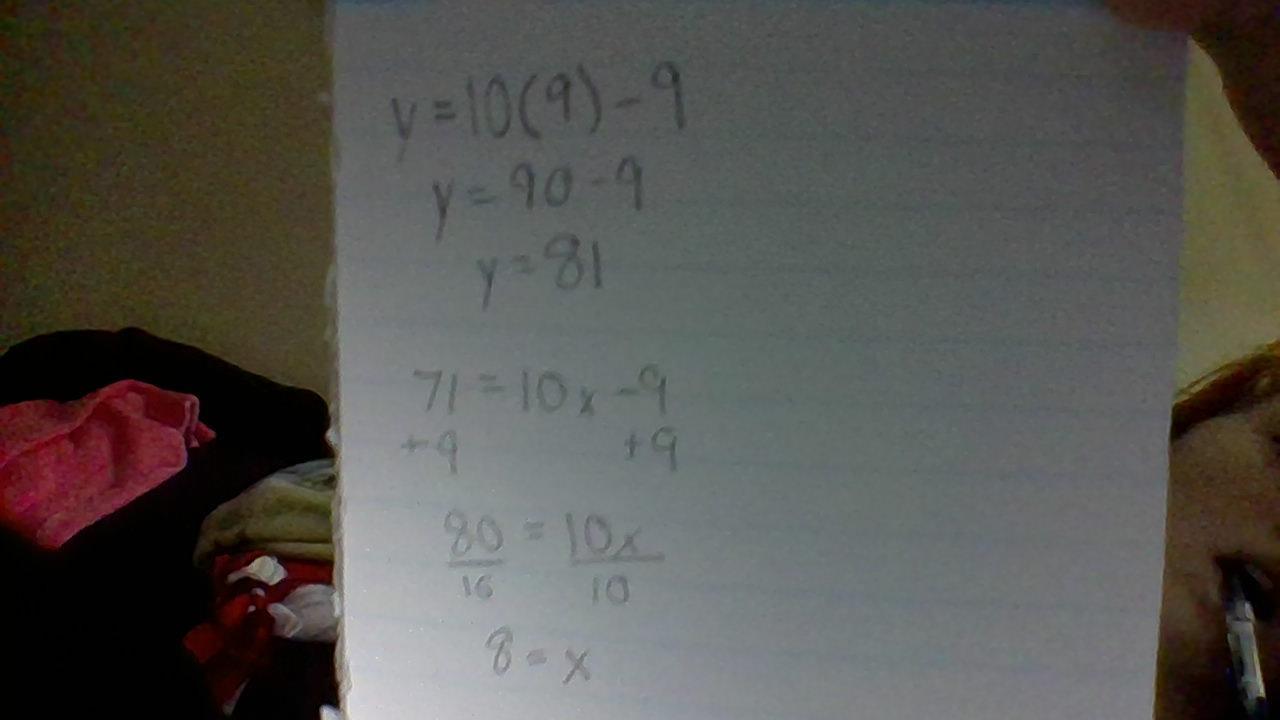 y=10(9)-9
y=90-9
y=81
71=10x-9
+9 +9
80=10x
10 10
8=x